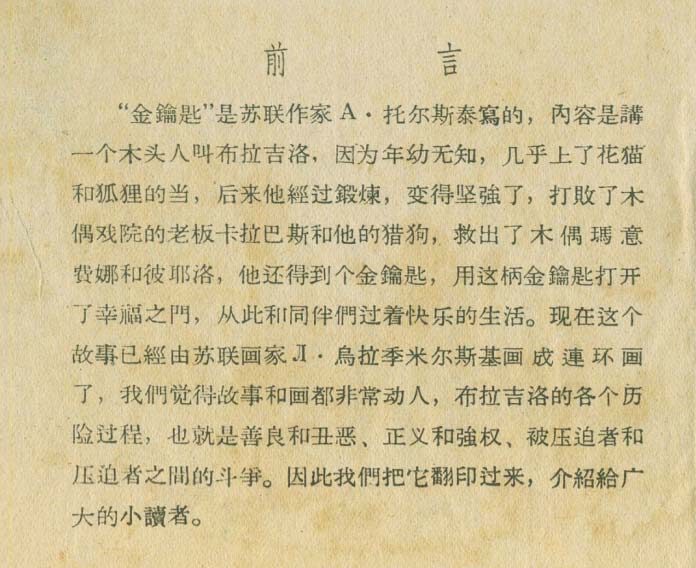 前言
“金鑰匙”是苏联作家A·托尔斯泰寫的，內容是講
一个木头人叫布拉吉洛，因为年幼无知，几乎上了花猫
和狐狸的当，后来他經过鍛煉，变得坚強了，打敗了木
偶戏院的老板卡拉巴斯和他的猎狗，救出了木偶瑪意
費娜和彼耶洛，他还得到个金鑰匙，用这柄金鑰匙打开
了幸福之門，从此和同伴們过着快乐的生活。现在这个
故事已經由苏联画家Л·烏拉季米尔斯基画成連环画
了，我們觉得故事和画都非常动人，布拉吉洛的各个历
险过程，也就是善良和丑恶、正义和強权、被压迫者和
压迫者之間的斗爭。因此我們把它翻印过来，介紹給广
大的小讀者。